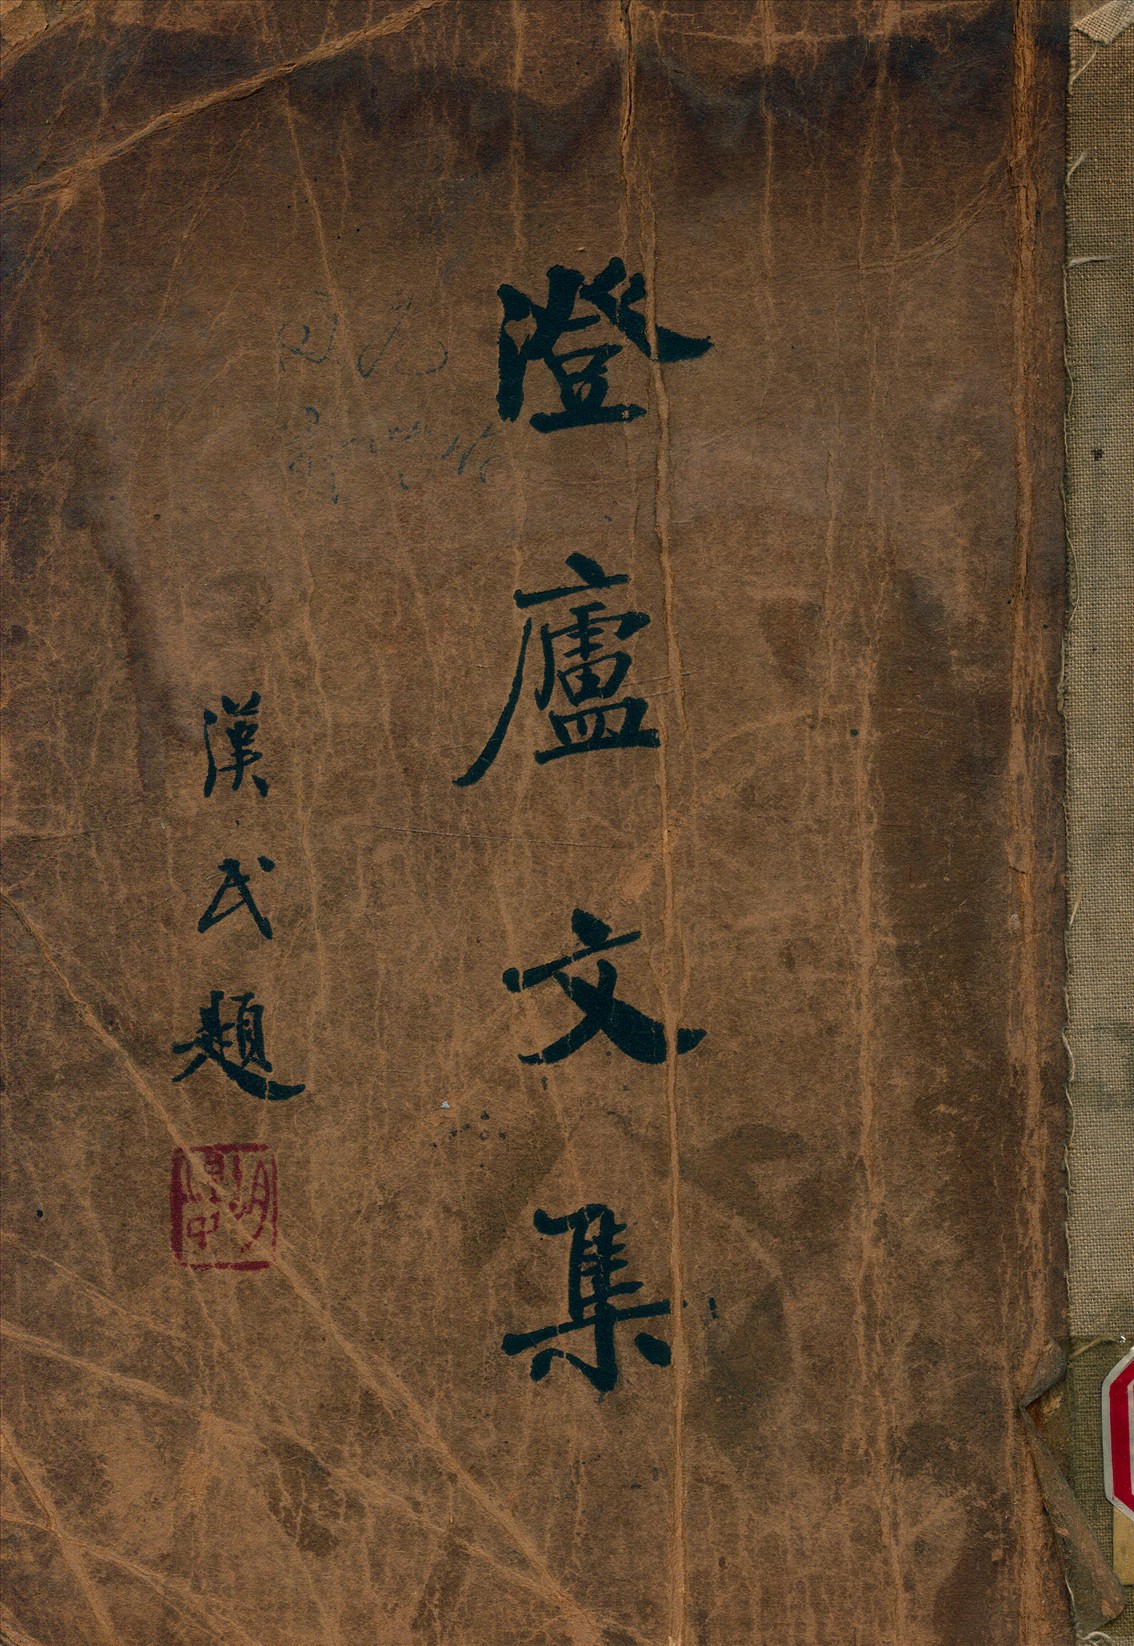 澄廬文集
漢民題